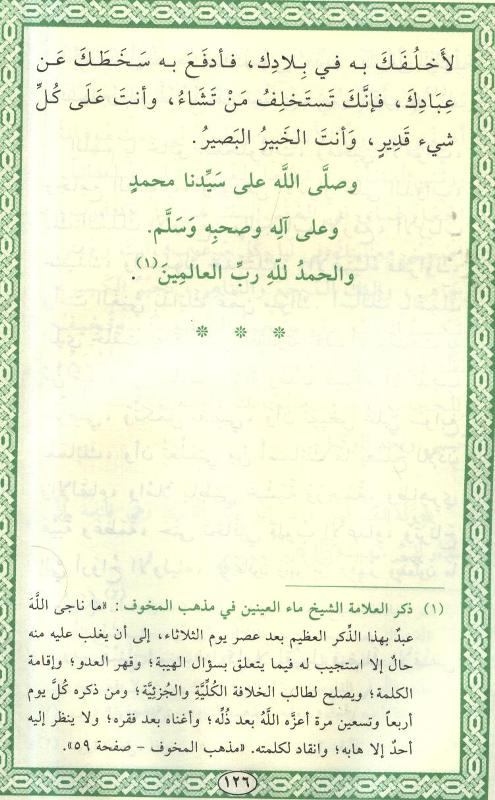 لأَخلُفَكَ به في بِلادِك، فأدفَعَ به سَخَطَكَ عَن
عِبَادِكَ، فإنَّكَ تَستَخلِفُ مَنْ تَشَاءُ، وأنتَ عَلَى كُلِّ
شيء قَدِيرٍ، وَأنتَ الخَبيرُ البَصيرُ.
وصلَّى اللَّه على سَيِّدنا محمدٍ
وعلى آله وصحبِه وَسَلَّم.
والحمدُ للَّهِ ربِّ العالمِينَ(١).
* * *
(١) ذكر العلامة الشيخ ماء العينين في مذهب المخوف: «ما ناجى اللَّهَ
عبدٌ بهذا الذِّكر العظيم بعد عصر يوم الثلاثاء، إلى أن يغلب عليه منه
حالٌ إلا استجيب له فيما يتعلق بسؤال الهيبة؛ وقهر العدو؛ وإقامة
الكلمة؛ ويصلح لطالب الخلافة الكُلِّيَّةِ والجُزئِيَّة؛ ومن ذكره كُلَّ يوم
أربعاً وتسعين مرة أعزَّه اللَّهُ بعد ذُلِّه؛ وأغناه بعد فقره؛ ولا ينظر إليه
أحدٌ إلا هابه؛ وانقاد لكلمته. «مذهب المخوف - صفحة ٥٩».
١٢٦